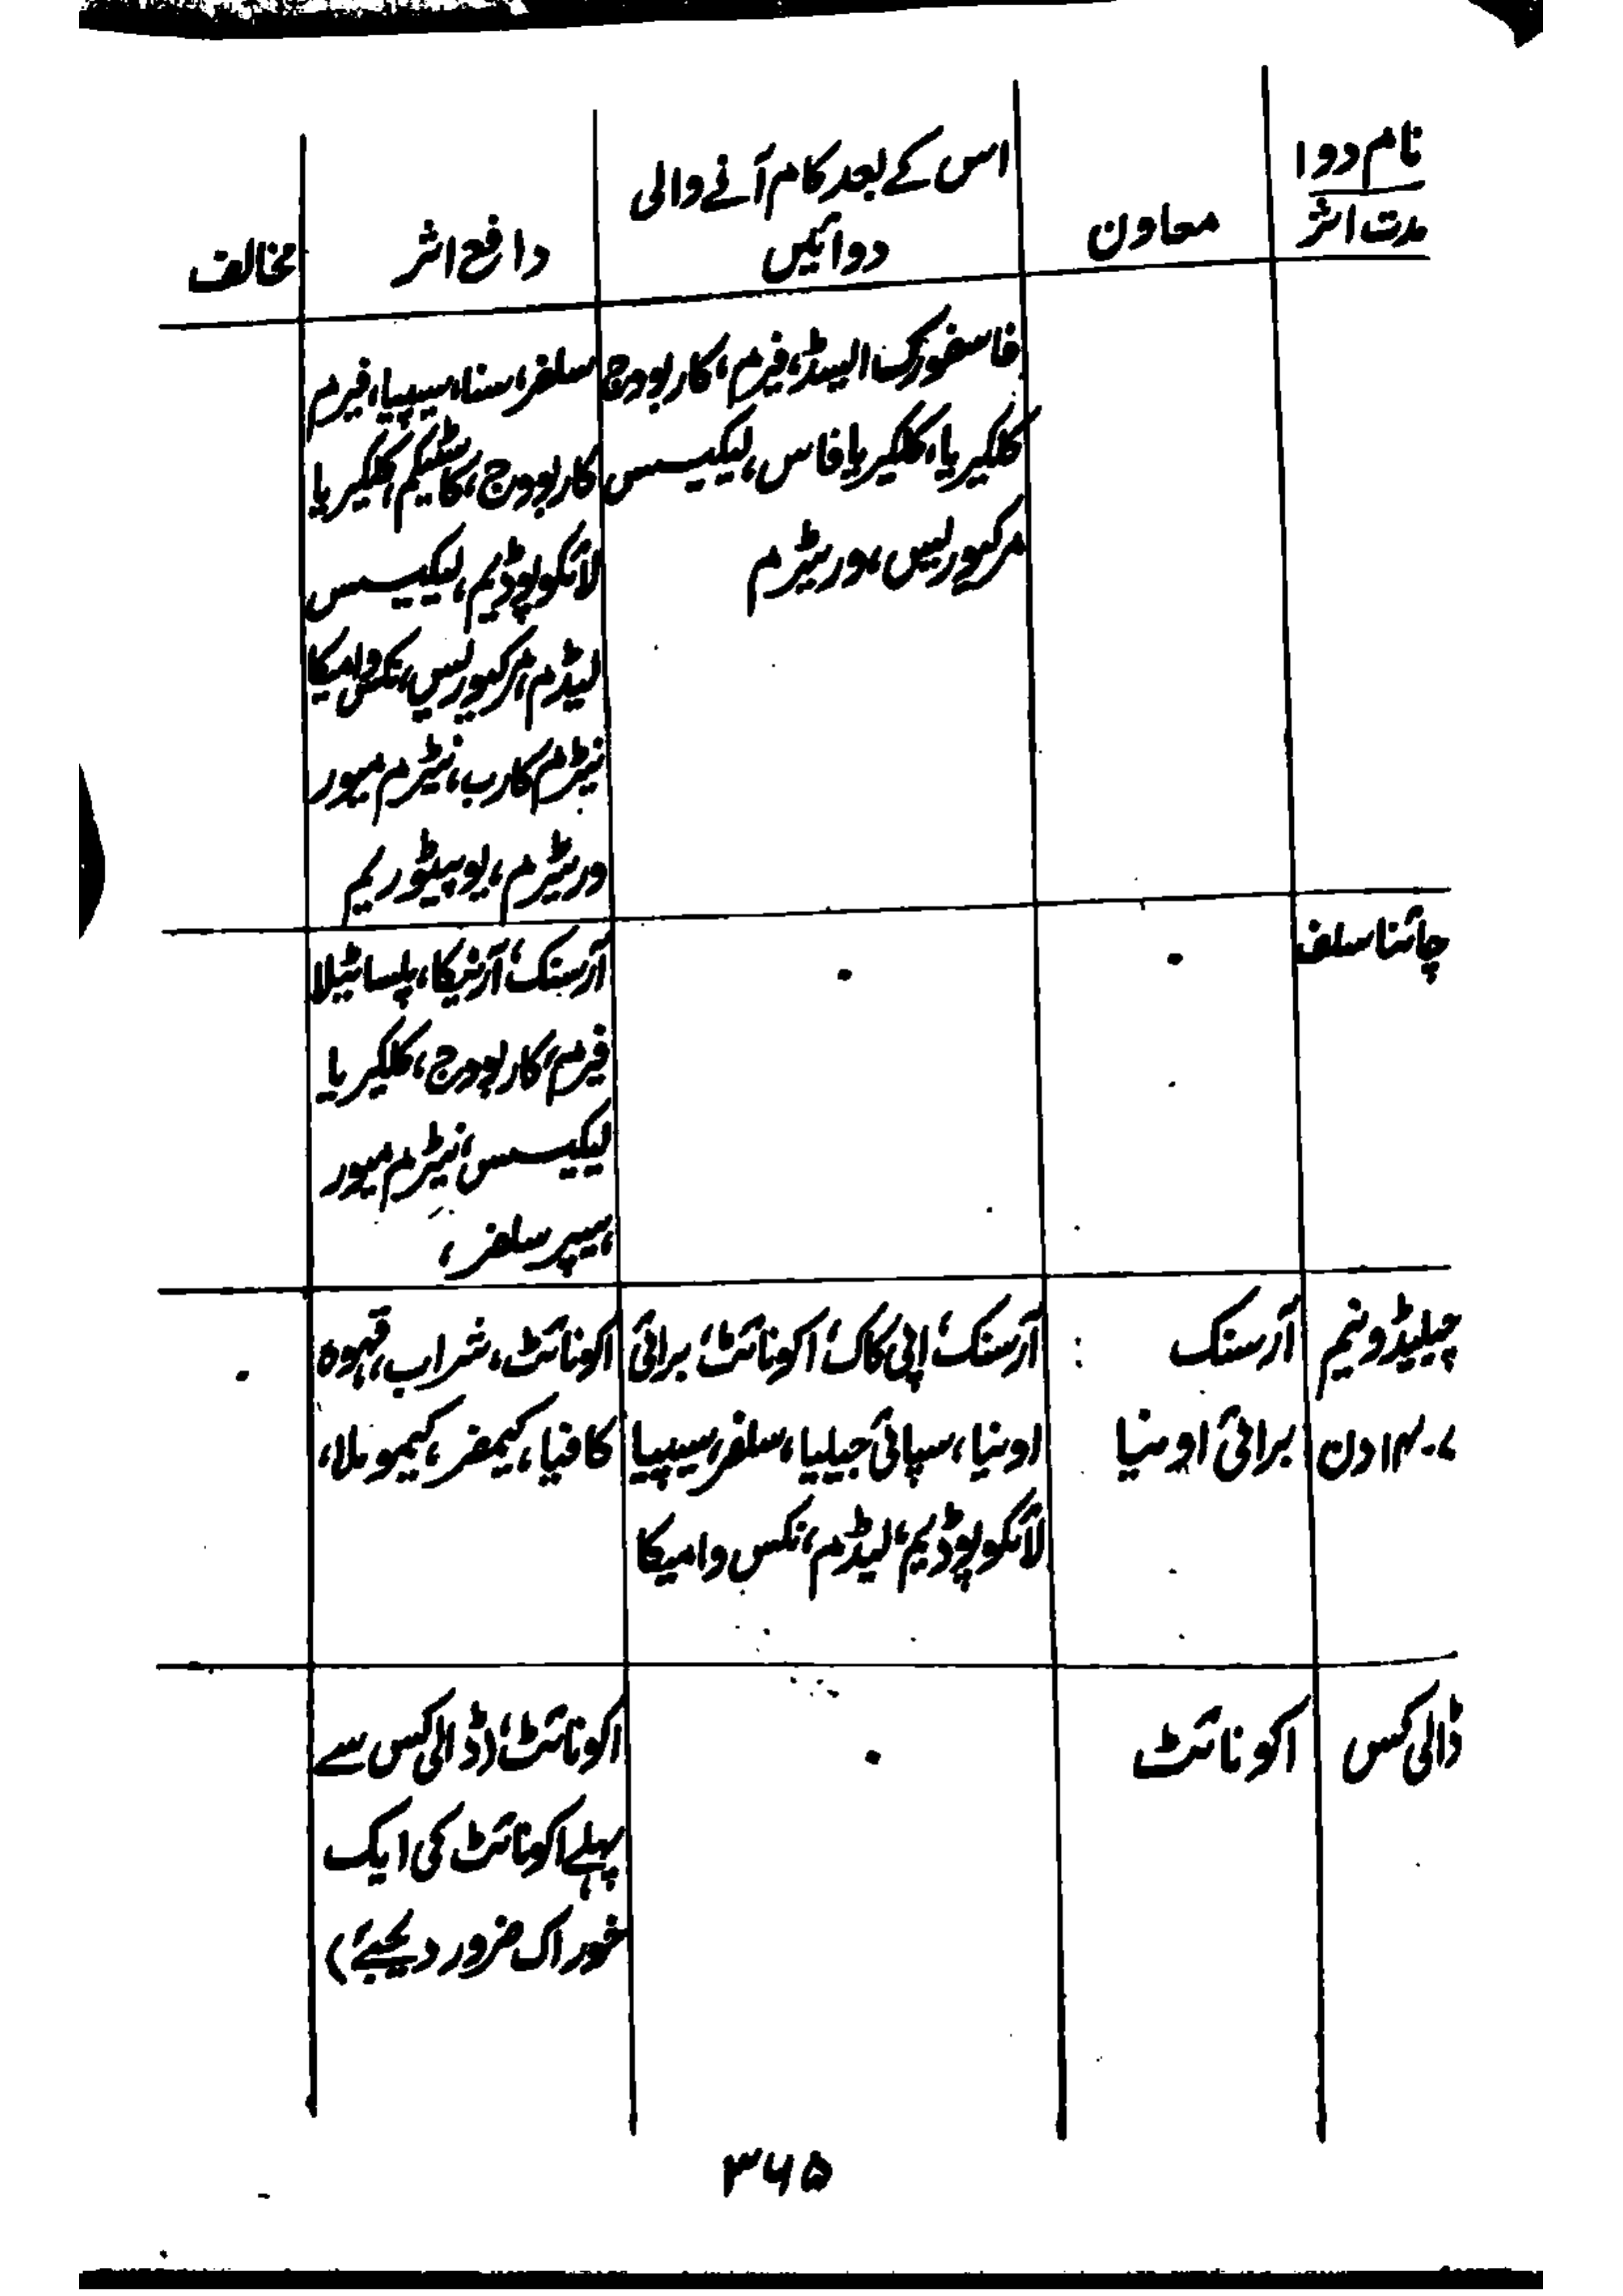 نام دوا
مدت اثر
معاون
اس کے بعد کام آنے والی
دوائیں
دافع اثر
مخالف
فاسفورک ایسڈ، فیرم، کاربوویج
کلکیریا، کلکیریا فاس، لیکیسس
مرکیورلیس، وریٹرم
سلفر، سنا، سیپیا، فیرم
کاربوویج، کاسٹیکم، کلکیریا
لائکوپوڈیم، لیکیسس
لیڈم، مرکیورلیس، نکس وامیکا
نیٹرم کارب، نیٹرم میور
وریٹرم، یوپیٹوریم
چائنا سلف
آرسنک، آرنیکا، پلساٹیلا
فیرم، کاربوویج، کلکیریا
لیکیسس، نیٹرم میور
ہیپر سلفر،
چیلیڈونیم
۷۔۱۴ دن
آرسنک
برائی اونیا
آرسنک، اپی کاک، اکونائٹ، برائی
اونیا، سپائی جیلیا، سلفر، سیپیا
لائکوپوڈیم، لیڈم، نکس وامیکا
اکونائٹ، شراب، قہوہ
کافیا، کیمفر، کیموملا،
ڈالی کس
اکونائٹ
اکونائٹ، (ڈالی کس سے
پہلے اکونائٹ کی ایک
خوراک ضرور دیجیئے)
۳۶۵